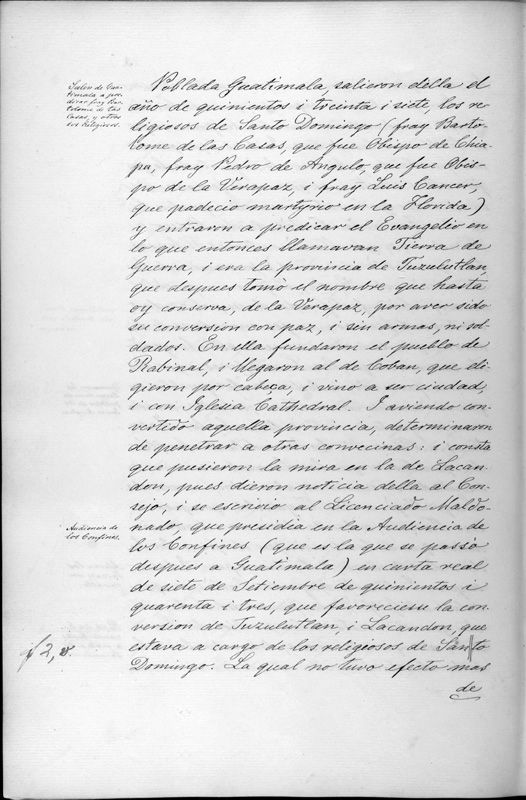 Salen de Gua-
temala a pre-
dicar fray Bar-
tolome de las
Casas, y otros
sus Religiosos.
Poblada Guatimala, salieron della el
año de quinientos i treinta i siete, los re-
ligiosos de Santo Domingo (fray Barto-
lome de las Casas, que fue Obispo de Chia-
pa, fray Pedro de Angulo, que fue Obis-
po de la Verapaz, i fray Luis Cancer,
que padecio martyrio en la Florida)
y entraron a predicar el Evangelio en
lo que entonces llamavan Tierra de
Guerra, i era la provincia de Tuzulutlan,
que despues tomò el nombre que hasta
oy conserva, de la Verapaz, por aver sido
su conversion con paz, i sin armas, ni sol-
dados. En ella fundaron el pueblo de
Rabinal, i llegaron al de Coban, que eli-
gieron por cabeça, i vino a ser ciudad,
i con Iglesia Cathedral. I aviendo con-
vertido aquella provincia, determinaron
de penetrar a otras convecinas: i consta
que pusieron la mira en la de Lacan-
don, pues dieron noticia della al Con-
sejo, i se escrivio al Licenciado Maldo-
nado, que presidia en la Audiencia de
Audiencia de
los Confines.
los Confines (que es la que se passò
despues a Guatimala) en carta real
de siete de Setiembre de quinientos i
quarenta i tres, que favoreciesse la con-
version de Tuzulutlan, i Lacandon, que
estava a cargo de los religiosos de San||to
f 2, v.
Domingo. La qual no tuvo efecto mas
de